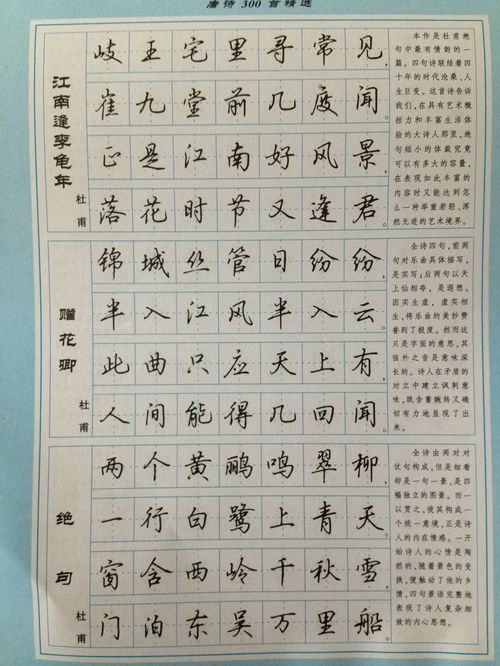 唐诗300首精选
江南逢李龟年
杜甫
岐王宅里寻常见，
崔九堂前几度闻。
正是江南好风景，
落花时节又逢君。
本作是杜甫绝
句中最有情韵的一
篇。四句诗联结着四
十年的时代沧桑、人
生巨变。这首诗告诉
我们，在具有艺术概
括力和丰富生活体
验的大诗人那里，绝
句短小的体裁究竟
可以有多大的容量，
在表现如此丰富的
内容时又能达到怎
么一种举重若轻、浑
然无迹的艺术境界。
赠花卿
杜甫
锦城丝管日纷纷，
半入江风半入云。
此曲只应天上有，
人间能得几回闻。
全诗四句，前两
句对乐曲具体描写，
是实写；后两句以天
上仙相夸，是遐想。
因实生虚，虚实相
生，将乐曲的美妙赞
誉到了极度。然而这
只是字面的意思，其
弦外之音是意味深
长的。诗人在矛盾的
对立中建立讽刺意
味，既含蓄婉转又确
切有力地显现了出
来。
绝句
杜甫
两个黄鹂鸣翠柳，
一行白鹭上青天。
窗含西岭千秋雪，
门泊东吴万里船。
全诗由两对对
仗句构成，但是细看
却是一句一景，是四
幅独立的图景。而一
以贯之，使其构成一
个统一意境，正是诗
人的内在情感。一开
始诗人的心情是陶
然的，随着景色的变
换，便触动了他的乡
情，四句景语完整地
表现了诗人复杂细
致的内心思想。